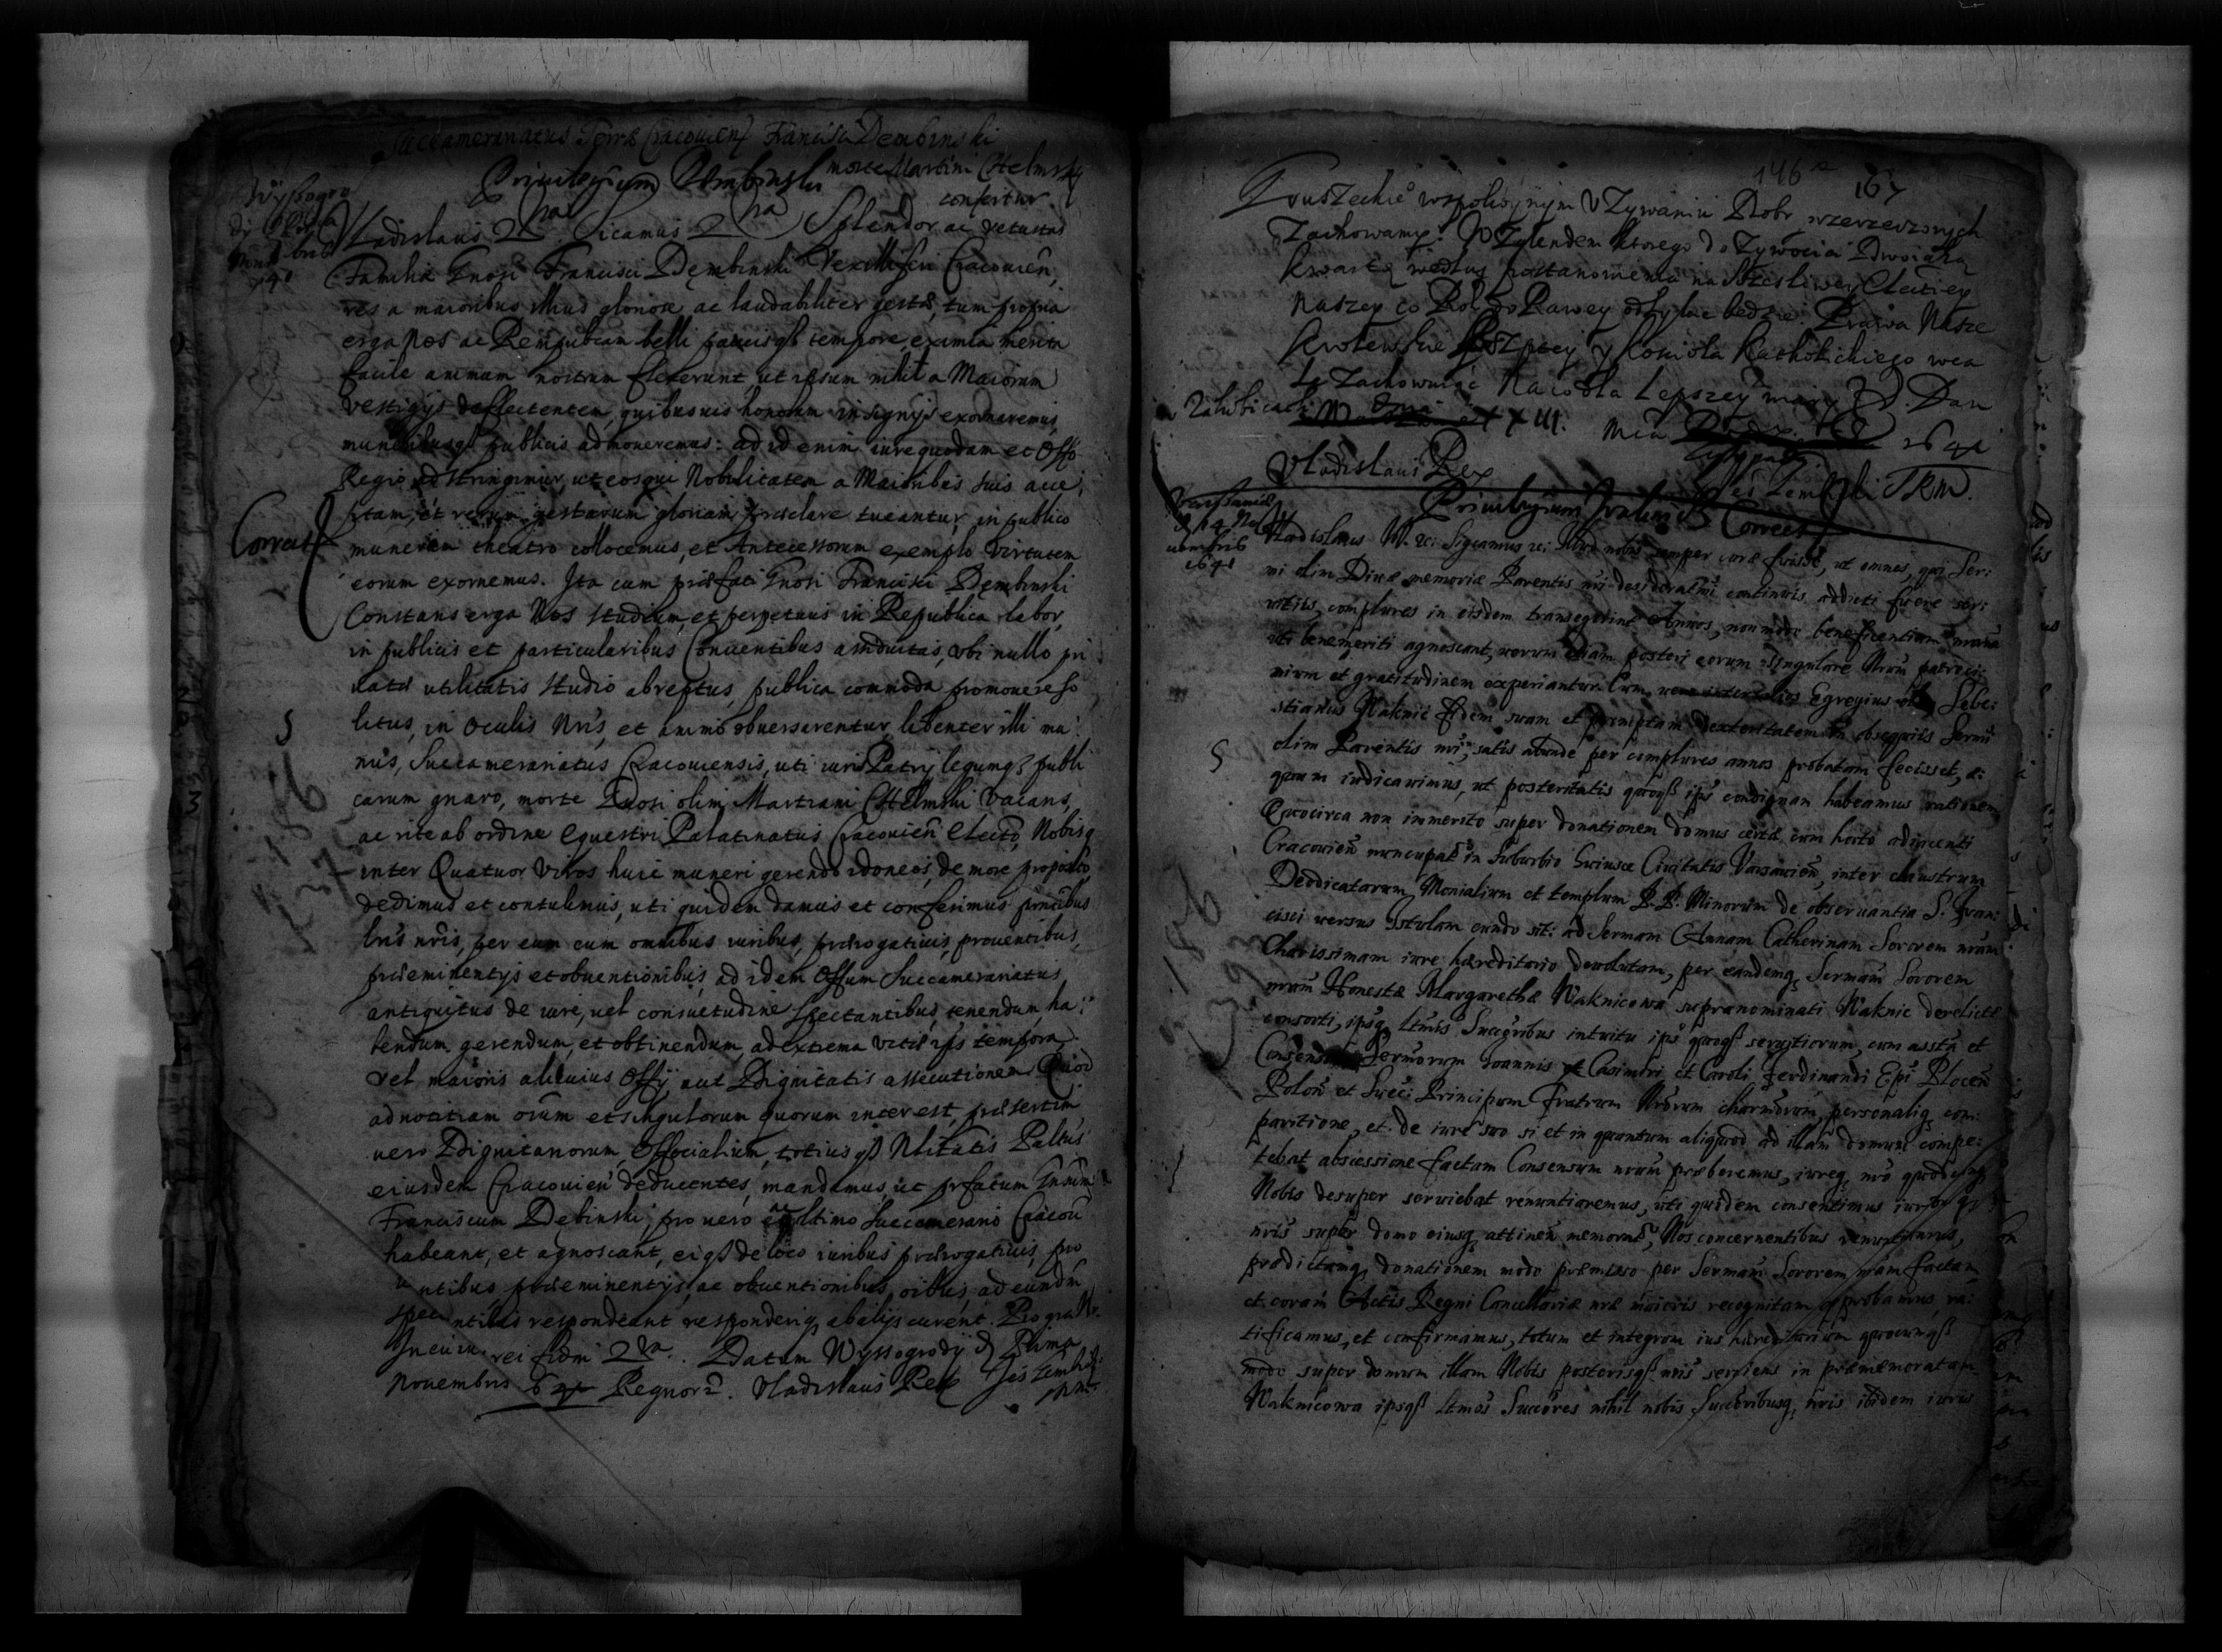 Succamerariatus Terræ Cracouien Francisci Dembinski
Priuilegium Dembinski morte Martini Chelmsky
confertur
Wyssogro
dÿ
Correct
Ladislaus Significamus Splendor ac vetustas
Familiæ Gnosi Francisci Dęmbinski Vexilliferi Cracouien,
res a maioribus illius gloriose ac laudabiliter gestæ, tum propria
erga Nos ac Rempubcam belli pacisqß tempore eximia merita
facile animum nostrum flexerunt, ut ipsum nihil a Maiorum
vestigijs deflectentem, quibusuis honorum insignijs exornaremus
muneribusqß publicis admoueremus: ad id enim iure quodam et Offo
Regio adstringimur, ut eos qui Nobilitatem a Maioribus suis acce
ptam, et rerum gestarum gloriam præclare tueantur, in publico
munerum theatro collocemus, et Antecessorum exemplo virtutem
eorum exornemus. Ita cum præfati Gnosi Francisci Dembinski
Constans erga Nos studium, et perpetuus in Republica labor,
in publicis et particularibus Conuentibus assiduitas, ubi nullo pri
uatæ utilitatis studio abreptus, publica commoda promouere so
litus, in oculis Nris, et animo obuersarentur, libenter illi mu
nus, Succamerariatus Cracouiensis, uti iuris Patrij legumqȝ publi
carum gnaro, morte Gnosi olim Martiani Chelmski vacans,
ac rite ab ordine equestri Palatinatus Cracouien electo, Nobisq
inter Quatuor Viros huic muneri gerendo idoneos, de more proposito,
dedimus et contulimus, uti quidem damus et conferimus præsentibus
lris nris, per eum cum omnibus iuribus, prærogatiuis, prouentibus,
præeminentijs et obuentionibus, ad idem Offum Succamerariatus
antiquitus de iure, uel consuetudine spectantibus, tenendum ha:
bendum gerendum, et obtinendum, ad extrema vitæ ips tempora
vel maioris alicuius Offij aut Dignitatis assecutionem. Quod
ad notitiam oium et singulorum quorum interest, præsertim
uero Dignitariorum, Officialium, totiusqß Nlitatis Paltus
eiusdem Cracouien deducentes, mandamus, ut præfatum Gnsum
Franciscum Debinski, pro uero ac ltimo Succamerario Cracou
habeant, et agnoscant, eiqß de loco iuribus prærogatiuis, pro
uentibus præeminentijs ac obuentionibus, oibus, ad eundm
spectantibus respondeant responderiq ab alijs curent. Pro gra
In cuius rei fidm. Datum Wyssogrodÿ d Prima
Nouembris 641 Regnor. Vladislaus Rex
5
146 167
Truszeckie w spokoynym Vzywaniu Dobr
Zachowamy. Wzglendem ktorego do Zywocia Dwoiaką
kwartę według postanowienia na Sczesliwey Electiey
naszey co Rok do Rawey odsyłac bedzie. Prawa Nasze
krolewskie Rzptey y kosciola katholickiego wca
Le zachowuiąc Naco dla Lepszey wiary Dan
w Zalubicach XXIII. Mca 1641
Vladislaus Rex
Priuilegium Correct
Varssauiæ
d 14 No
uembris
1641
Vladislaus IV. Significamus Illud nobis semper curæ fuisse, ut omnes, qui Ser:
mi olim Diuæ memoriæ Parentis nri desideratmi continuis addicti fuere ser:
uitijs, complures in eisdem transegerint Annos, non modo beneficentiam nram
uti benemeriti agnoscant, uerum etiam posteri eorum singulare Nrum patroci:
nium et gratitudinem experiantur. Cum Egregius olim Seba:
stianus Waknic fidem suam et promptam dexteritatem in obsequijs Sermi
olim Parentis nri, satis abunde per complures annos probatam fecisset, æ:
quum iudicauimus, ut posteritatis quoqß ips condignam habeamus rationem
Quocirca non immerito super donationem domus certæ cum horto adiacenti
Cracouien nuncupat in Suburbio huiusce Ciuitatis Varsauien, inter claustrum
Deodicatarum Monialium et templum P.P. Minorum de obseruantia S. Fran:
cisci uersus Istulam eundo sit: ad Sermam Annam Catherinam Sororem nram
Charissimam iure hæreditario deuolutam, per eandemq Sermam Sororem
nram Honestæ Margarethæ Waknicowa supranominati Waknic derelictæ
consorti, ipsq ltmis Succribus intuitu ips quoqß seruitiorum, cum asstia et
Consensu Sermorum Joannis Casimiri et Caroli Ferdinandi Epi Plocen
Polon et Sueci Principum Fratrum Nrorum charmorum, personaliq com:
paritione, et de iure suo si et in quantum aliquod ad illam domum compe:
tebat abscessione factam Consensum nrum præberemus, iureq nro quodcunq
Nobis desuper seruiebat renuntiaremus, uti quidem consentimus iuribusqß
nris super domo eiusq attinen memorat, Nos concernentibus renuntiamus,
prædictamq donationem modo præmisso per Sermam Sororem nram factam
et coram Actis Regni Cancellariæ nræ maioris recognitam approbamus, ra:
tificamus, et confirmamus, totum et integrum ius hæreditarium quocunqß
modo super domum illam Nobis posterisqß nris seruiens in præmemoratam
Waknicowa ipsqß ltmos Succres nihil nobis Succribusq nris ibidem iuris
5